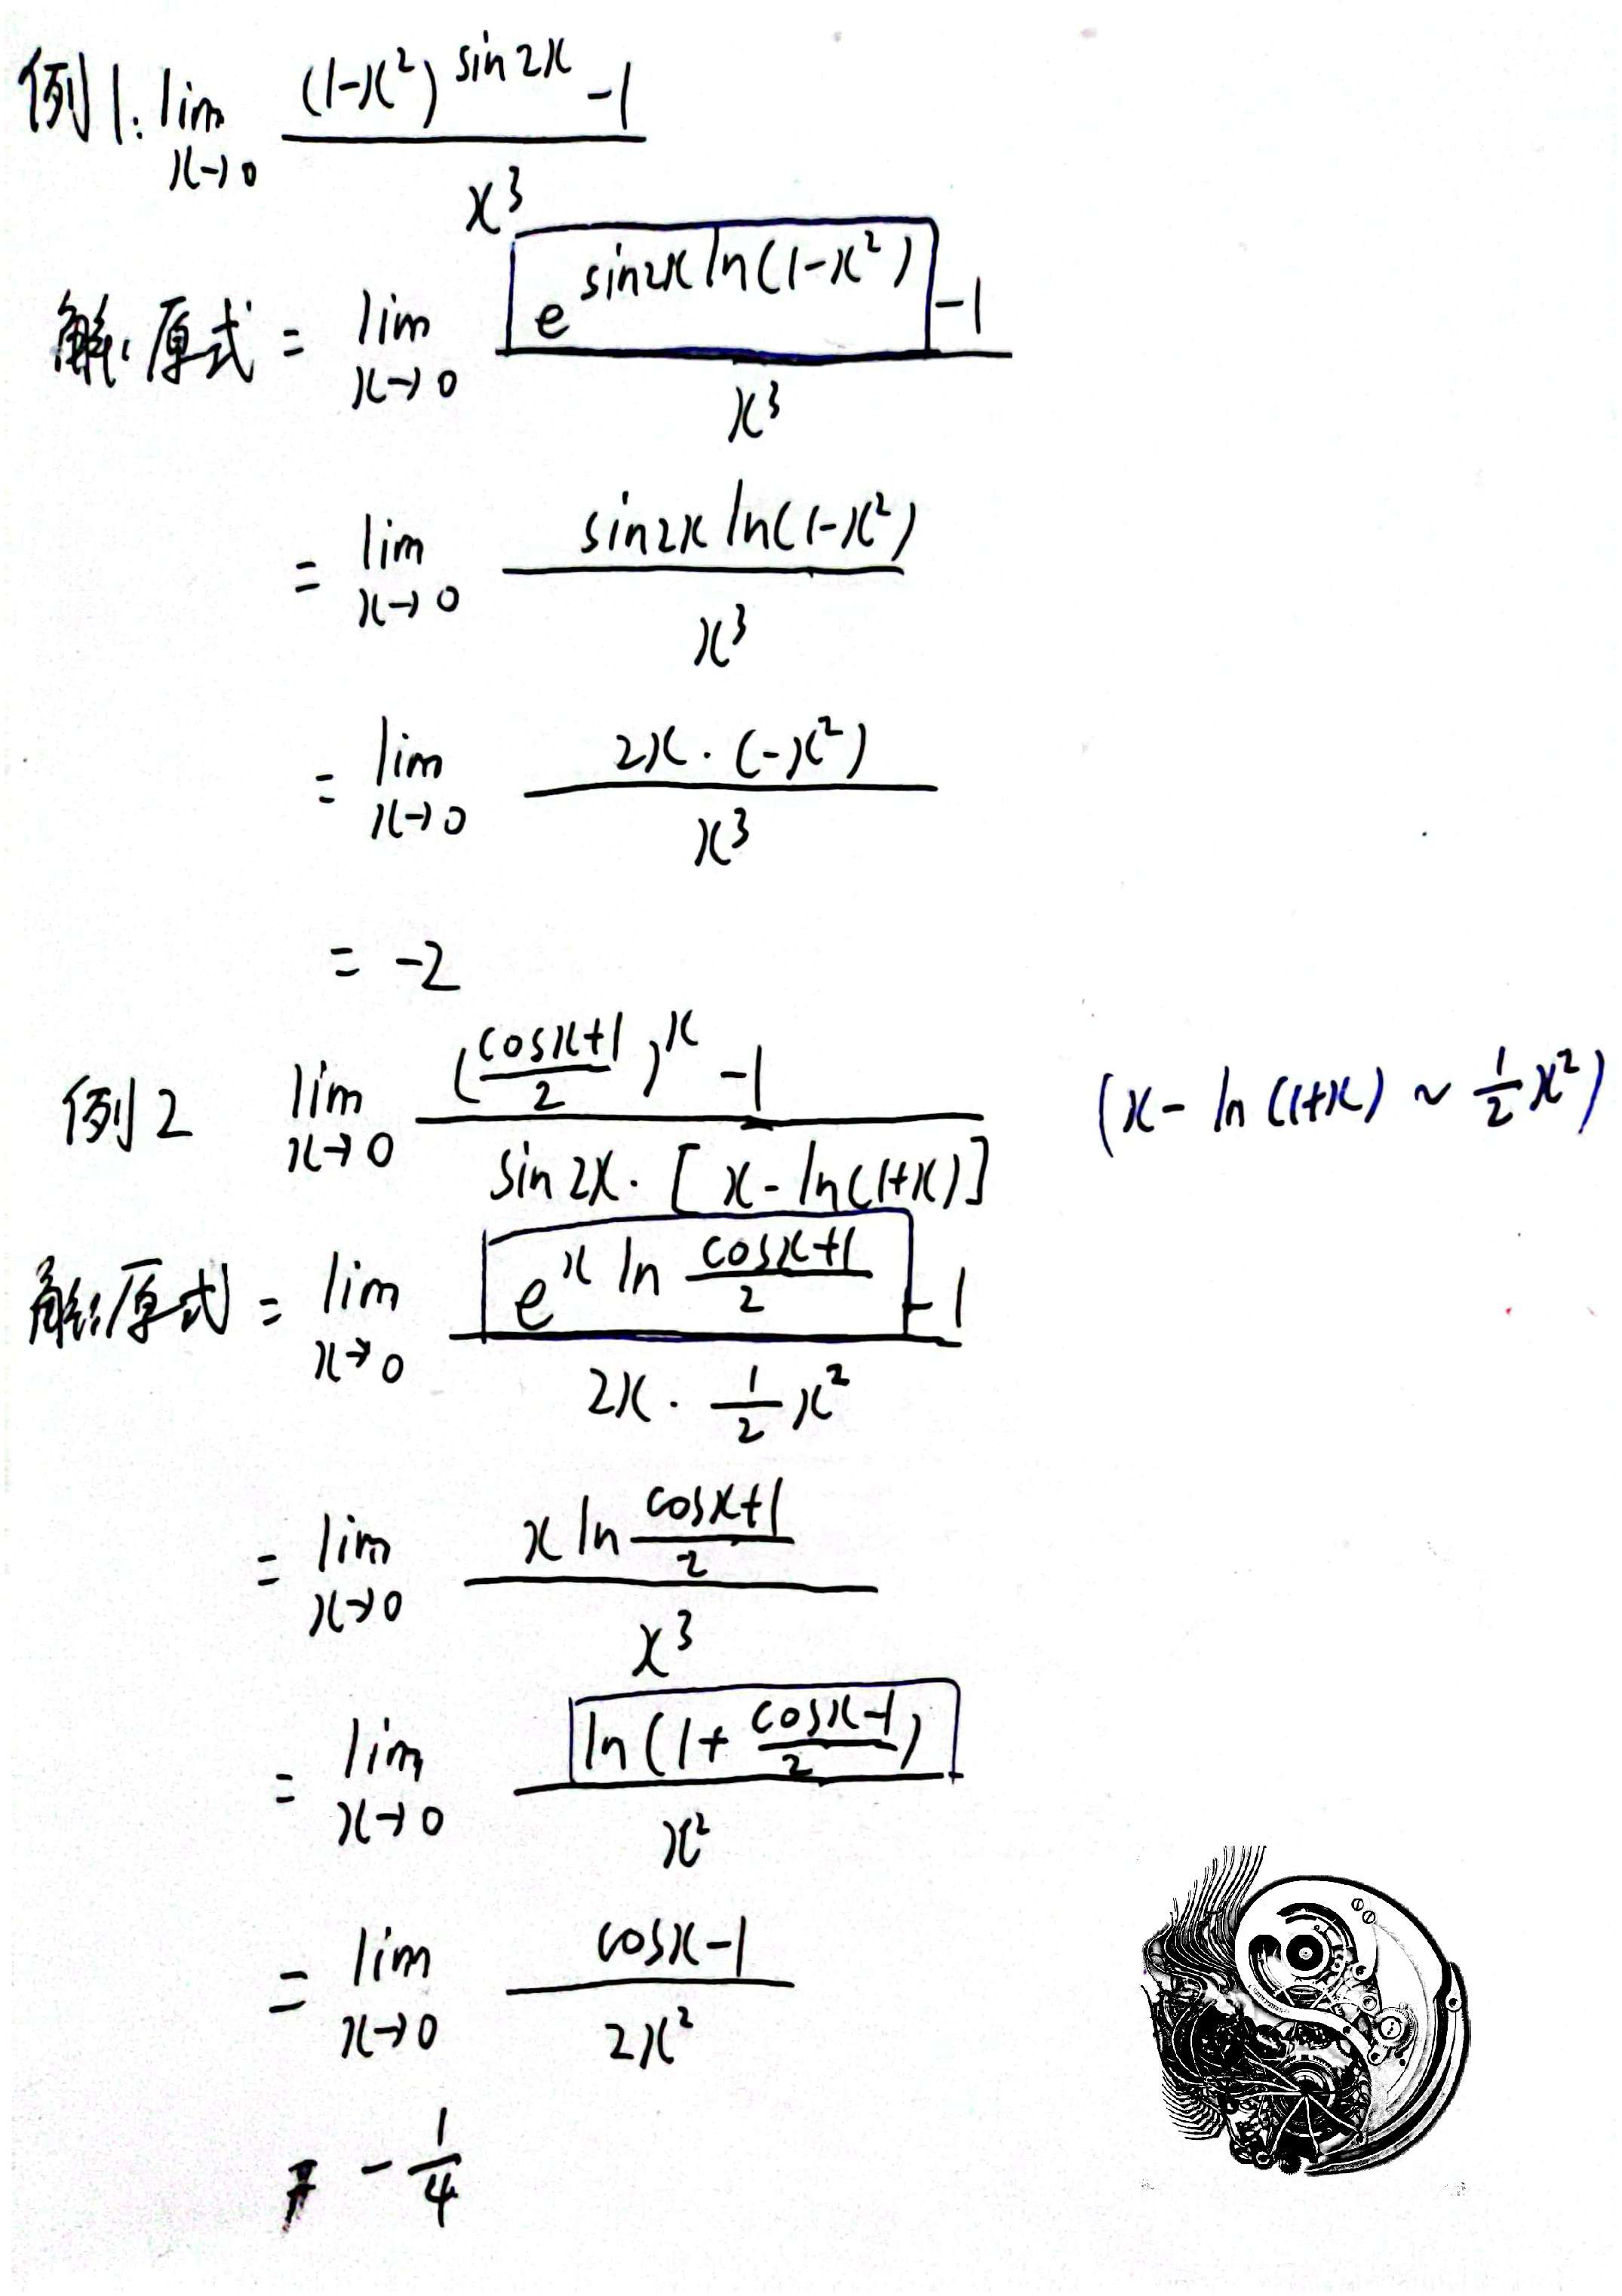 例1: lim_{x→0} ((1-x²)^{sin2x} - 1) / x³
解: 原式 = lim_{x→0} (e^{sin2x ln(1-x²)} - 1) / x³
= lim_{x→0} (sin2x ln(1-x²)) / x³
= lim_{x→0} (2x · (-x²)) / x³
= -2
例2 lim_{x→0} (((cosx+1)/2)^x - 1) / (sin2x · [x - ln(1+x)]) (x - ln(1+x) ~ 1/2 x²)
解: 原式 = lim_{x→0} (e^{x ln (cosx+1)/2} - 1) / (2x · 1/2 x²)
= lim_{x→0} (x ln (cosx+1)/2) / x³
= lim_{x→0} (ln(1 + (cosx-1)/2)) / x²
= lim_{x→0} (cosx-1) / 2x²
= -1/4